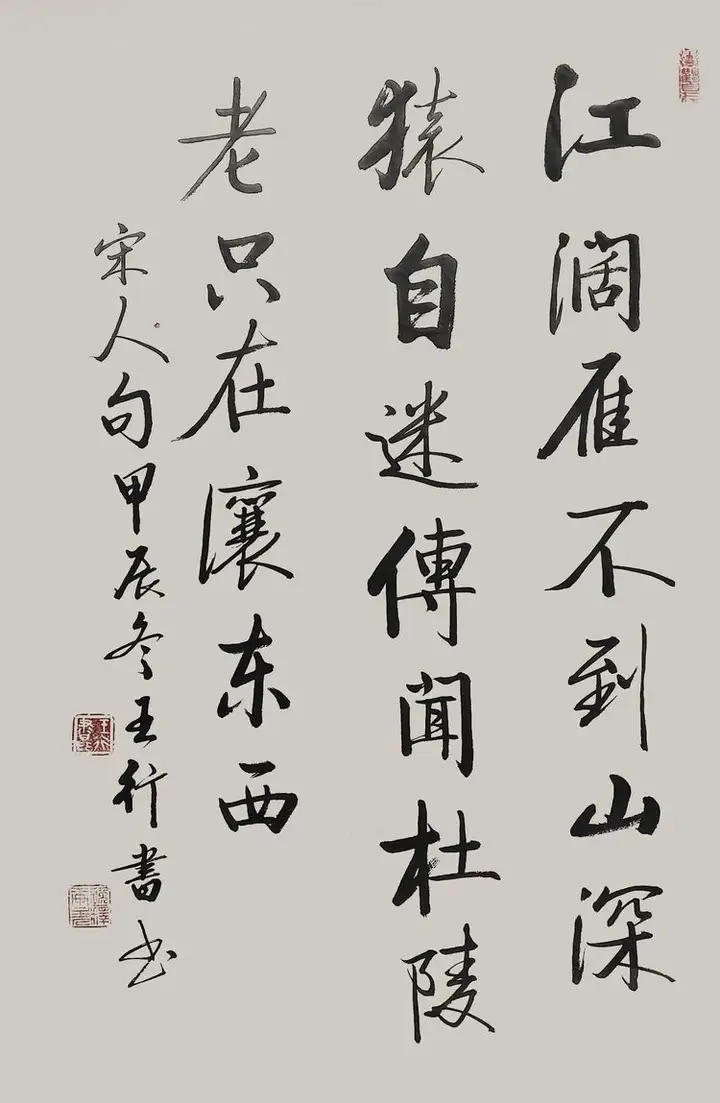 江濶雁不到山深
猿自迷傳聞杜陵
老只在瀼东西
宋人句甲辰冬王行書